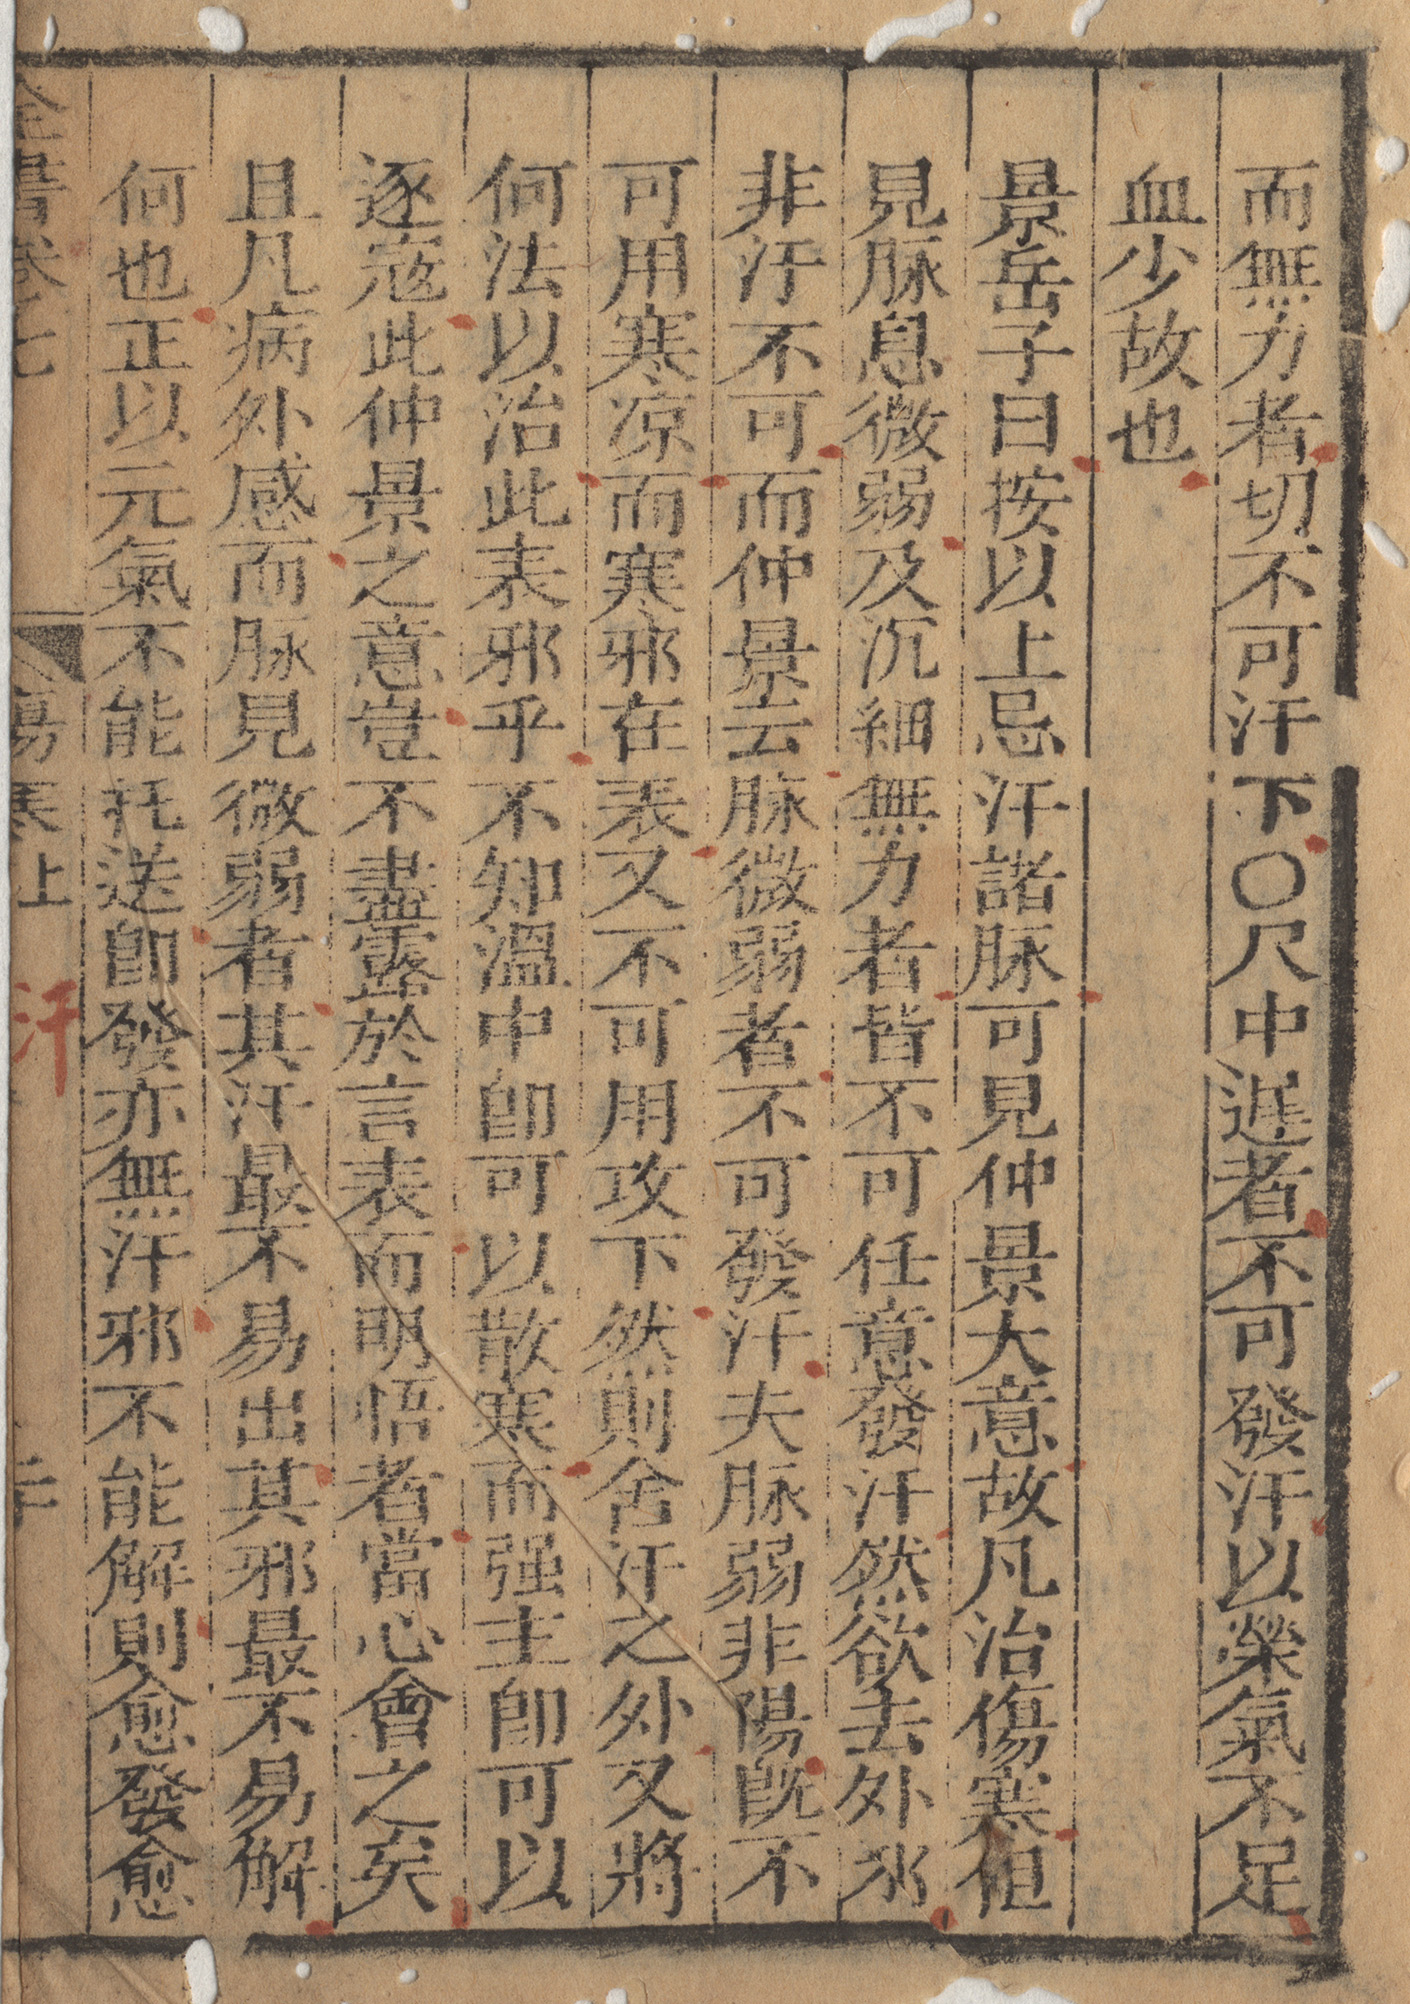 而無力者切不可汗下〇尺中遲者不可發汗以榮氣不足
血少故也
景岳子曰按以上忌汗諸脉可見仲景大意故凡治傷寒但
見脉息微弱及沉細無力者皆不可任意發汗然欲去外邪
非汗不可而仲景云脉微弱者不可發汗夫脉弱非陽旣不
可用寒凉而寒邪在表又不可用攻下然則舍汗之外又將
何法以治此表邪乎不知溫中卽可以散寒而强主卽可以
逐寇此仲景之意豈不盡露於言表而明悟者當心會之矣
且凡病外感而脉見微弱者其汗最不易出其邪最不易解
何也正以元氣不能托送卽發亦無汗邪不能解則愈發愈
全書卷七 傷寒上 汗